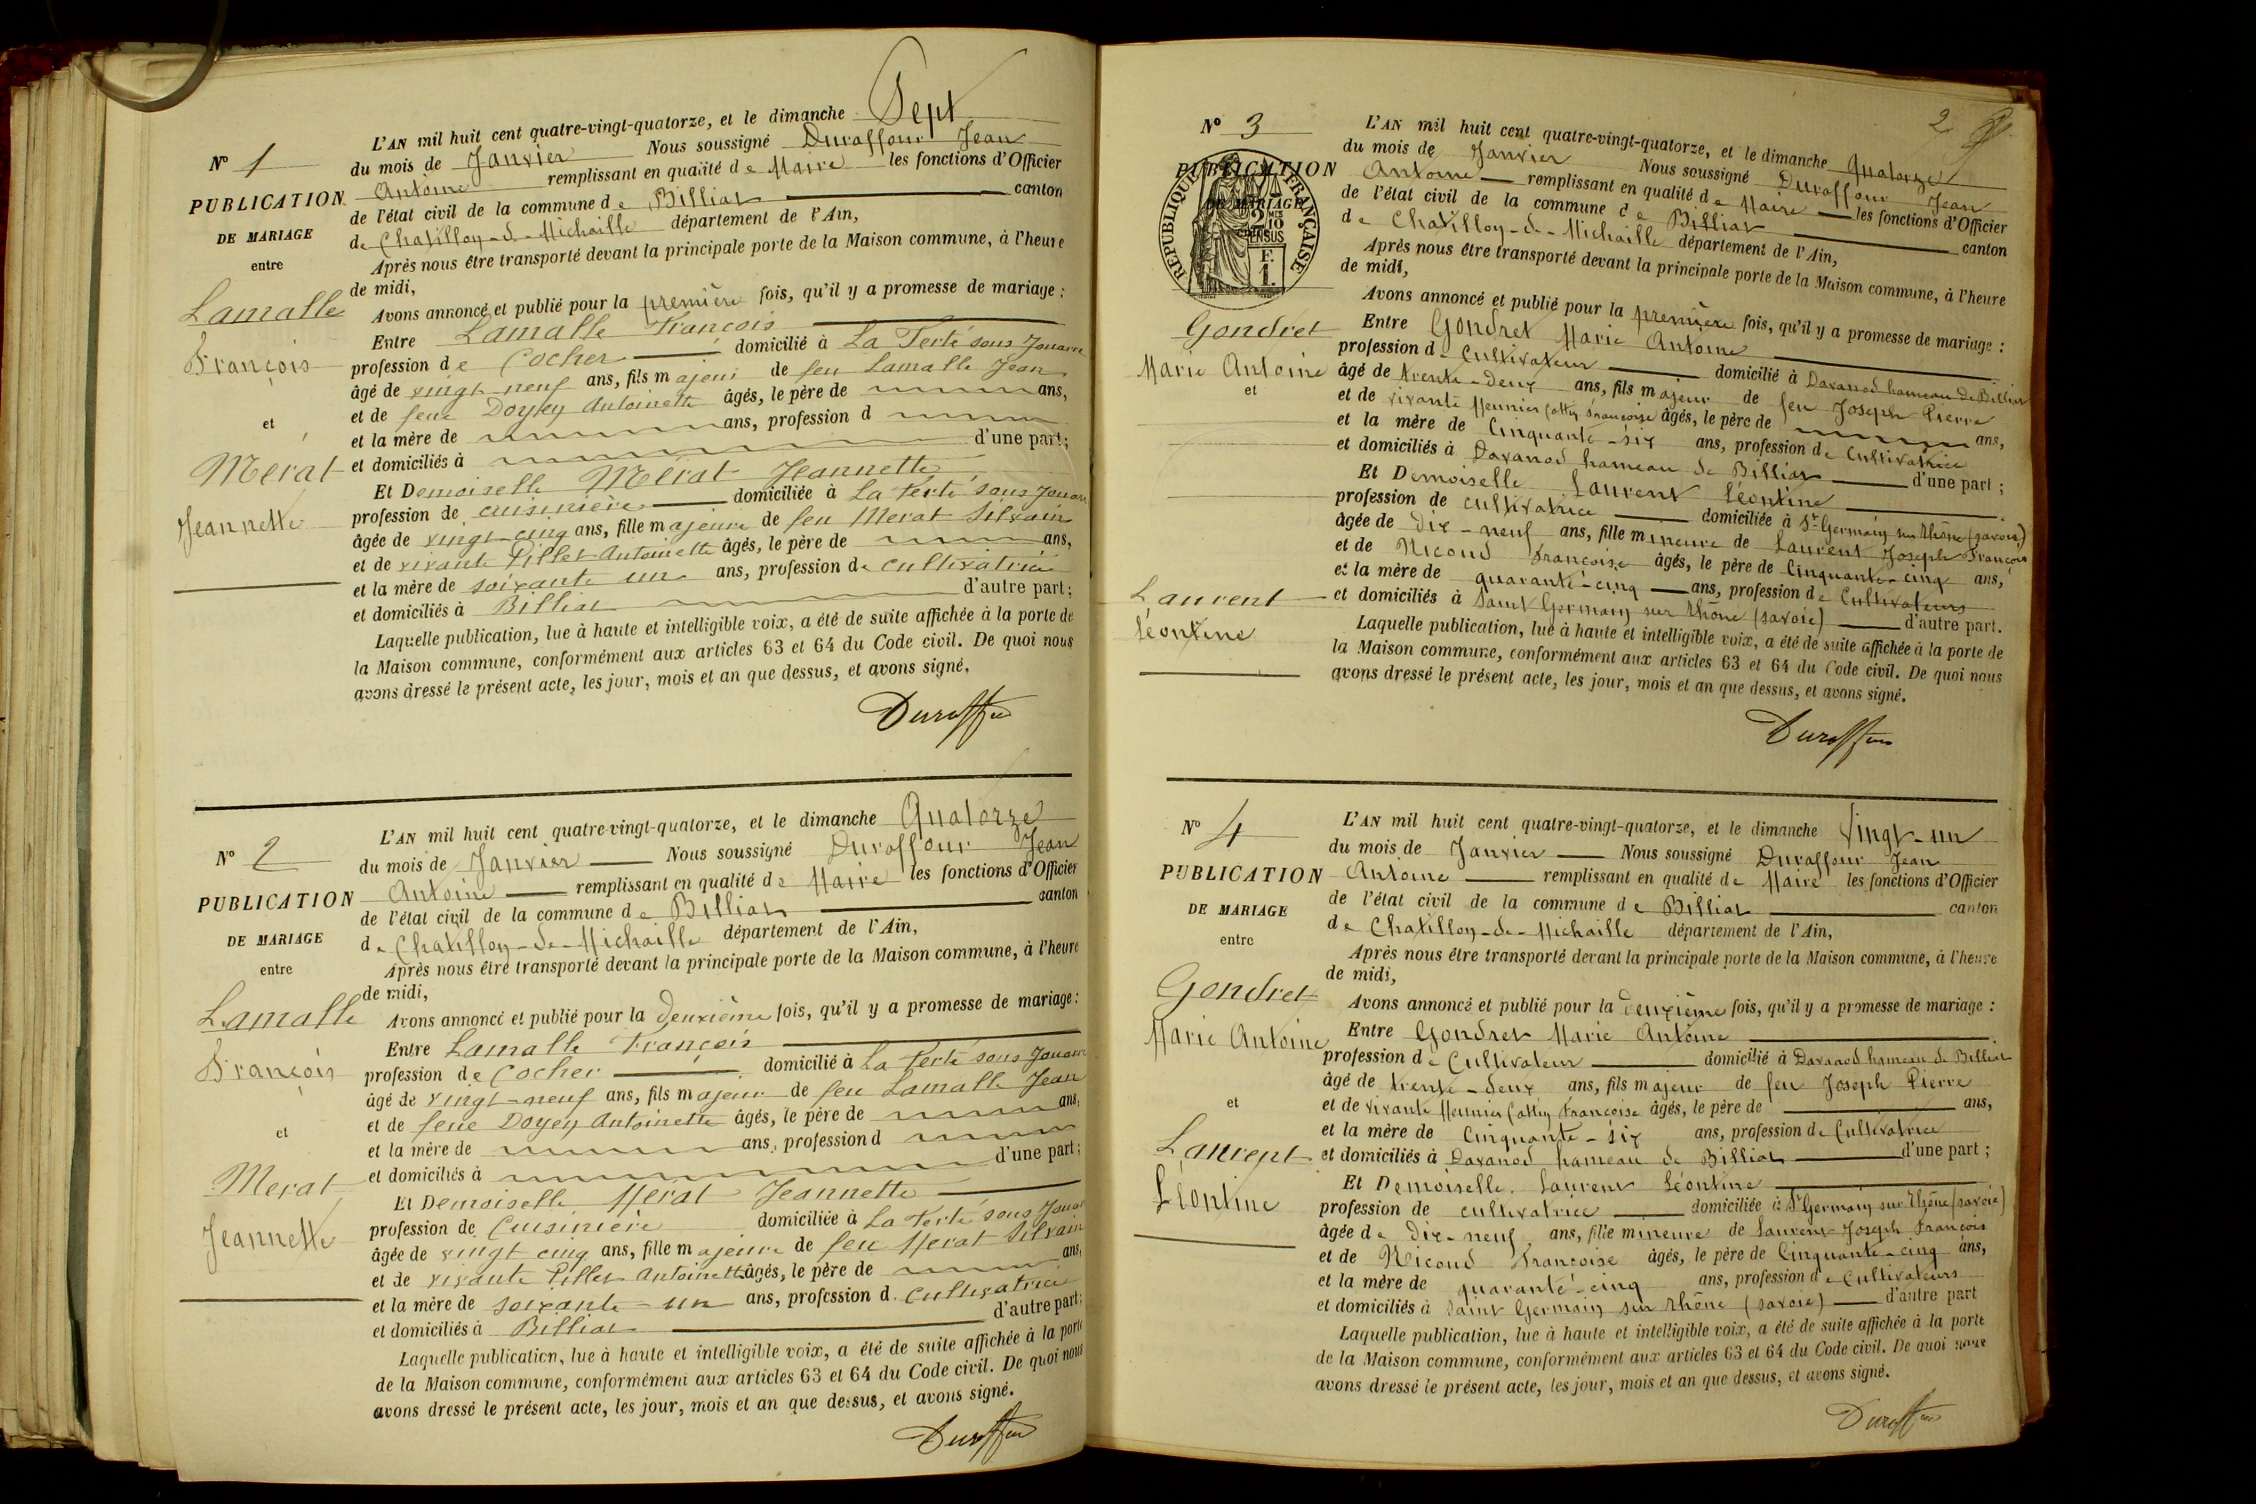 L'AN mil huit cent quatre-vingt-quatorze, et le dimanche Sept
du mois de Janvier Nous soussigné Duraffour Jean
Antoine remplissant en qualité de Maire les fonctions d'Officier
de l'état civil de la commune de Billiat canton
de Chatillon-de-Michaille département de l'Ain,
Après nous être transporté devant la principale porte de la Maison commune, à l'heure
de midi,
Avons annoncé et publié pour la première fois, qu'il y a promesse de mariage :
Entre Lamalle François
profession de Cocher domicilié à La Ferté sous Jouarre
âgé de vingt neuf ans, fils majeur de feu Lamalle Jean
et de feue Doyen Antoinette âgés, le père de ans,
et la mère de ans, profession d
et domiciliés à d'une part ;
Et Demoiselle Mérat Jeannette
profession de cuisinière domiciliée à La Ferté sous Jouarre
âgée de vingt-cinq ans, fille majeure de feu Merat Silvain
et de vivante Pillet Antoinette âgés, le père de ans,
et la mère de soixante un ans, profession de cultivatrice
et domiciliés à Billiat d'autre part ;
Laquelle publication, lue à haute et intelligible voix, a été de suite affichée à la porte de
la Maison commune, conformément aux articles 63 et 64 du Code civil. De quoi nous
avons dressé le présent acte, les jour, mois et an que dessus, et avons signé.
Duraffour
N° 1
PUBLICATION
DE MARIAGE
entre
Lamalle
François
et
Mérat
Jeannette
L'AN mil huit cent quatre-vingt-quatorze, et le dimanche Quatorze
du mois de Janvier Nous soussigné Duraffour Jean
Antoine remplissant en qualité de Maire les fonctions d'Officier
de l'état civil de la commune de Billiat canton
de Chatillon-de-Michaille département de l'Ain,
Après nous être transporté devant la principale porte de la Maison commune, à l'heure
de midi,
Avons annoncé et publié pour la deuxième fois, qu'il y a promesse de mariage :
Entre Lamalle François
profession de Cocher domicilié à La Ferté sous Jouarre
âgé de vingt-neuf ans, fils majeur de feu Lamalle Jean
et de feue Doyen Antoinette âgés, le père de ans,
et la mère de ans, profession d
et domiciliés à d'une part ;
Et Demoiselle Mérat Jeannette
profession de Cuisinière domiciliée à La Ferté sous Jouarre
âgée de vingt cinq ans, fille majeure de feu Merat Silvain
et de vivante Pillet Antoinette âgés, le père de ans,
et la mère de soixante-un ans, profession d. cultivatrice
et domiciliés à Billiat d'autre part ;
Laquelle publication, lue à haute et intelligible voix, a été de suite affichée à la porte
de la Maison commune, conformément aux articles 63 et 64 du Code civil. De quoi nous
avons dressé le présent acte, les jour, mois et an que dessus, et avons signé.
Duraffour
N° 2
PUBLICATION
DE MARIAGE
entre
Lamalle
François
et
Merat
Jeannette
2
L'AN mil huit cent quatre-vingt-quatorze, et le dimanche Quatorze
du mois de Janvier Nous soussigné Duraffour Jean
Antoine remplissant en qualité de Maire les fonctions d'Officier
de l'état civil de la commune de Billiat canton
de Chatillon-de-Michaille département de l'Ain,
Après nous être transporté devant la principale porte de la Maison commune, à l'heure
de midi,
Avons annoncé et publié pour la première fois, qu'il y a promesse de mariage :
Entre Gondret Marie Antoine
profession de Cultivateur domicilié à Davanod hameau de Billiat
âgé de trente-deux ans, fils majeur de feu Joseph Pierre
et de vivante Meunier Cattin Françoise âgés, le père de ans,
et la mère de Cinquante-six ans, profession de Cultivatrice
et domiciliés à Davanod hameau de Billiat d'une part ;
Et Demoiselle Laurent Léontine
profession de cultivatrice domiciliée à St Germain sur Rhône (savoie)
âgée de Dix-neuf ans, fille mineure de Laurent Joseph François
et de Nicoud Françoise âgés, le père de Cinquante-cinq ans,
et la mère de quarante-cinq ans, profession de Cultivateurs
et domiciliés à Saint Germain sur Rhône (savoie) d'autre part.
Laquelle publication, lue à haute et intelligible voix, a été de suite affichée à la porte de
la Maison commune, conformément aux articles 63 et 64 du Code civil. De quoi nous
avons dressé le présent acte, les jour, mois et an que dessus, et avons signé.
Duraffour
N° 3
PUBLICATION
DE MARIAGE
RÉPUBLIQUE FRANÇAISE
2 MES 10
EN SUS
F.
1.
Gondret
Marie Antoine
et
Laurent
Léontine
L'AN mil huit cent quatre-vingt-quatorze, et le dimanche Vingt-un
du mois de Janvier Nous soussigné Duraffour Jean
Antoine remplissant en qualité de Maire les fonctions d'Officier
de l'état civil de la commune de Billiat canton
de Chatillon-de-Michaille département de l'Ain,
Après nous être transporté devant la principale porte de la Maison commune, à l'heure
de midi,
Avons annoncé et publié pour la deuxième fois, qu'il y a promesse de mariage :
Entre Gondret Marie Antoine
profession de Cultivateur domicilié à Davanod hameau de Billiat
âgé de trente-deux ans, fils majeur de feu Joseph Pierre
et de vivante Meunier Cattin Françoise âgés, le père de ans,
et la mère de Cinquante-six ans, profession de Cultivatrice
et domiciliés à Davanod hameau de Billiat d'une part ;
Et Demoiselle. Laurent Léontine
profession de cultivatrice domiciliée à St Germain sur Rhône (savoie)
âgée de Dix-neuf ans, fille mineure de Laurent Joseph François
et de Nicoud Françoise âgés, le père de Cinquante-cinq ans,
et la mère de quarante-cinq ans, profession de Cultivateurs
et domiciliés à Saint Germain sur Rhône (savoie) d'autre part
Laquelle publication, lue à haute et intelligible voix, a été de suite affichée à la porte
de la Maison commune, conformément aux articles 63 et 64 du Code civil. De quoi nous
avons dressé le présent acte, les jour, mois et an que dessus, et avons signé.
Duraffour
N° 4
PUBLICATION
DE MARIAGE
entre
Gondret
Marie Antoine
et
Laurent
Léontine